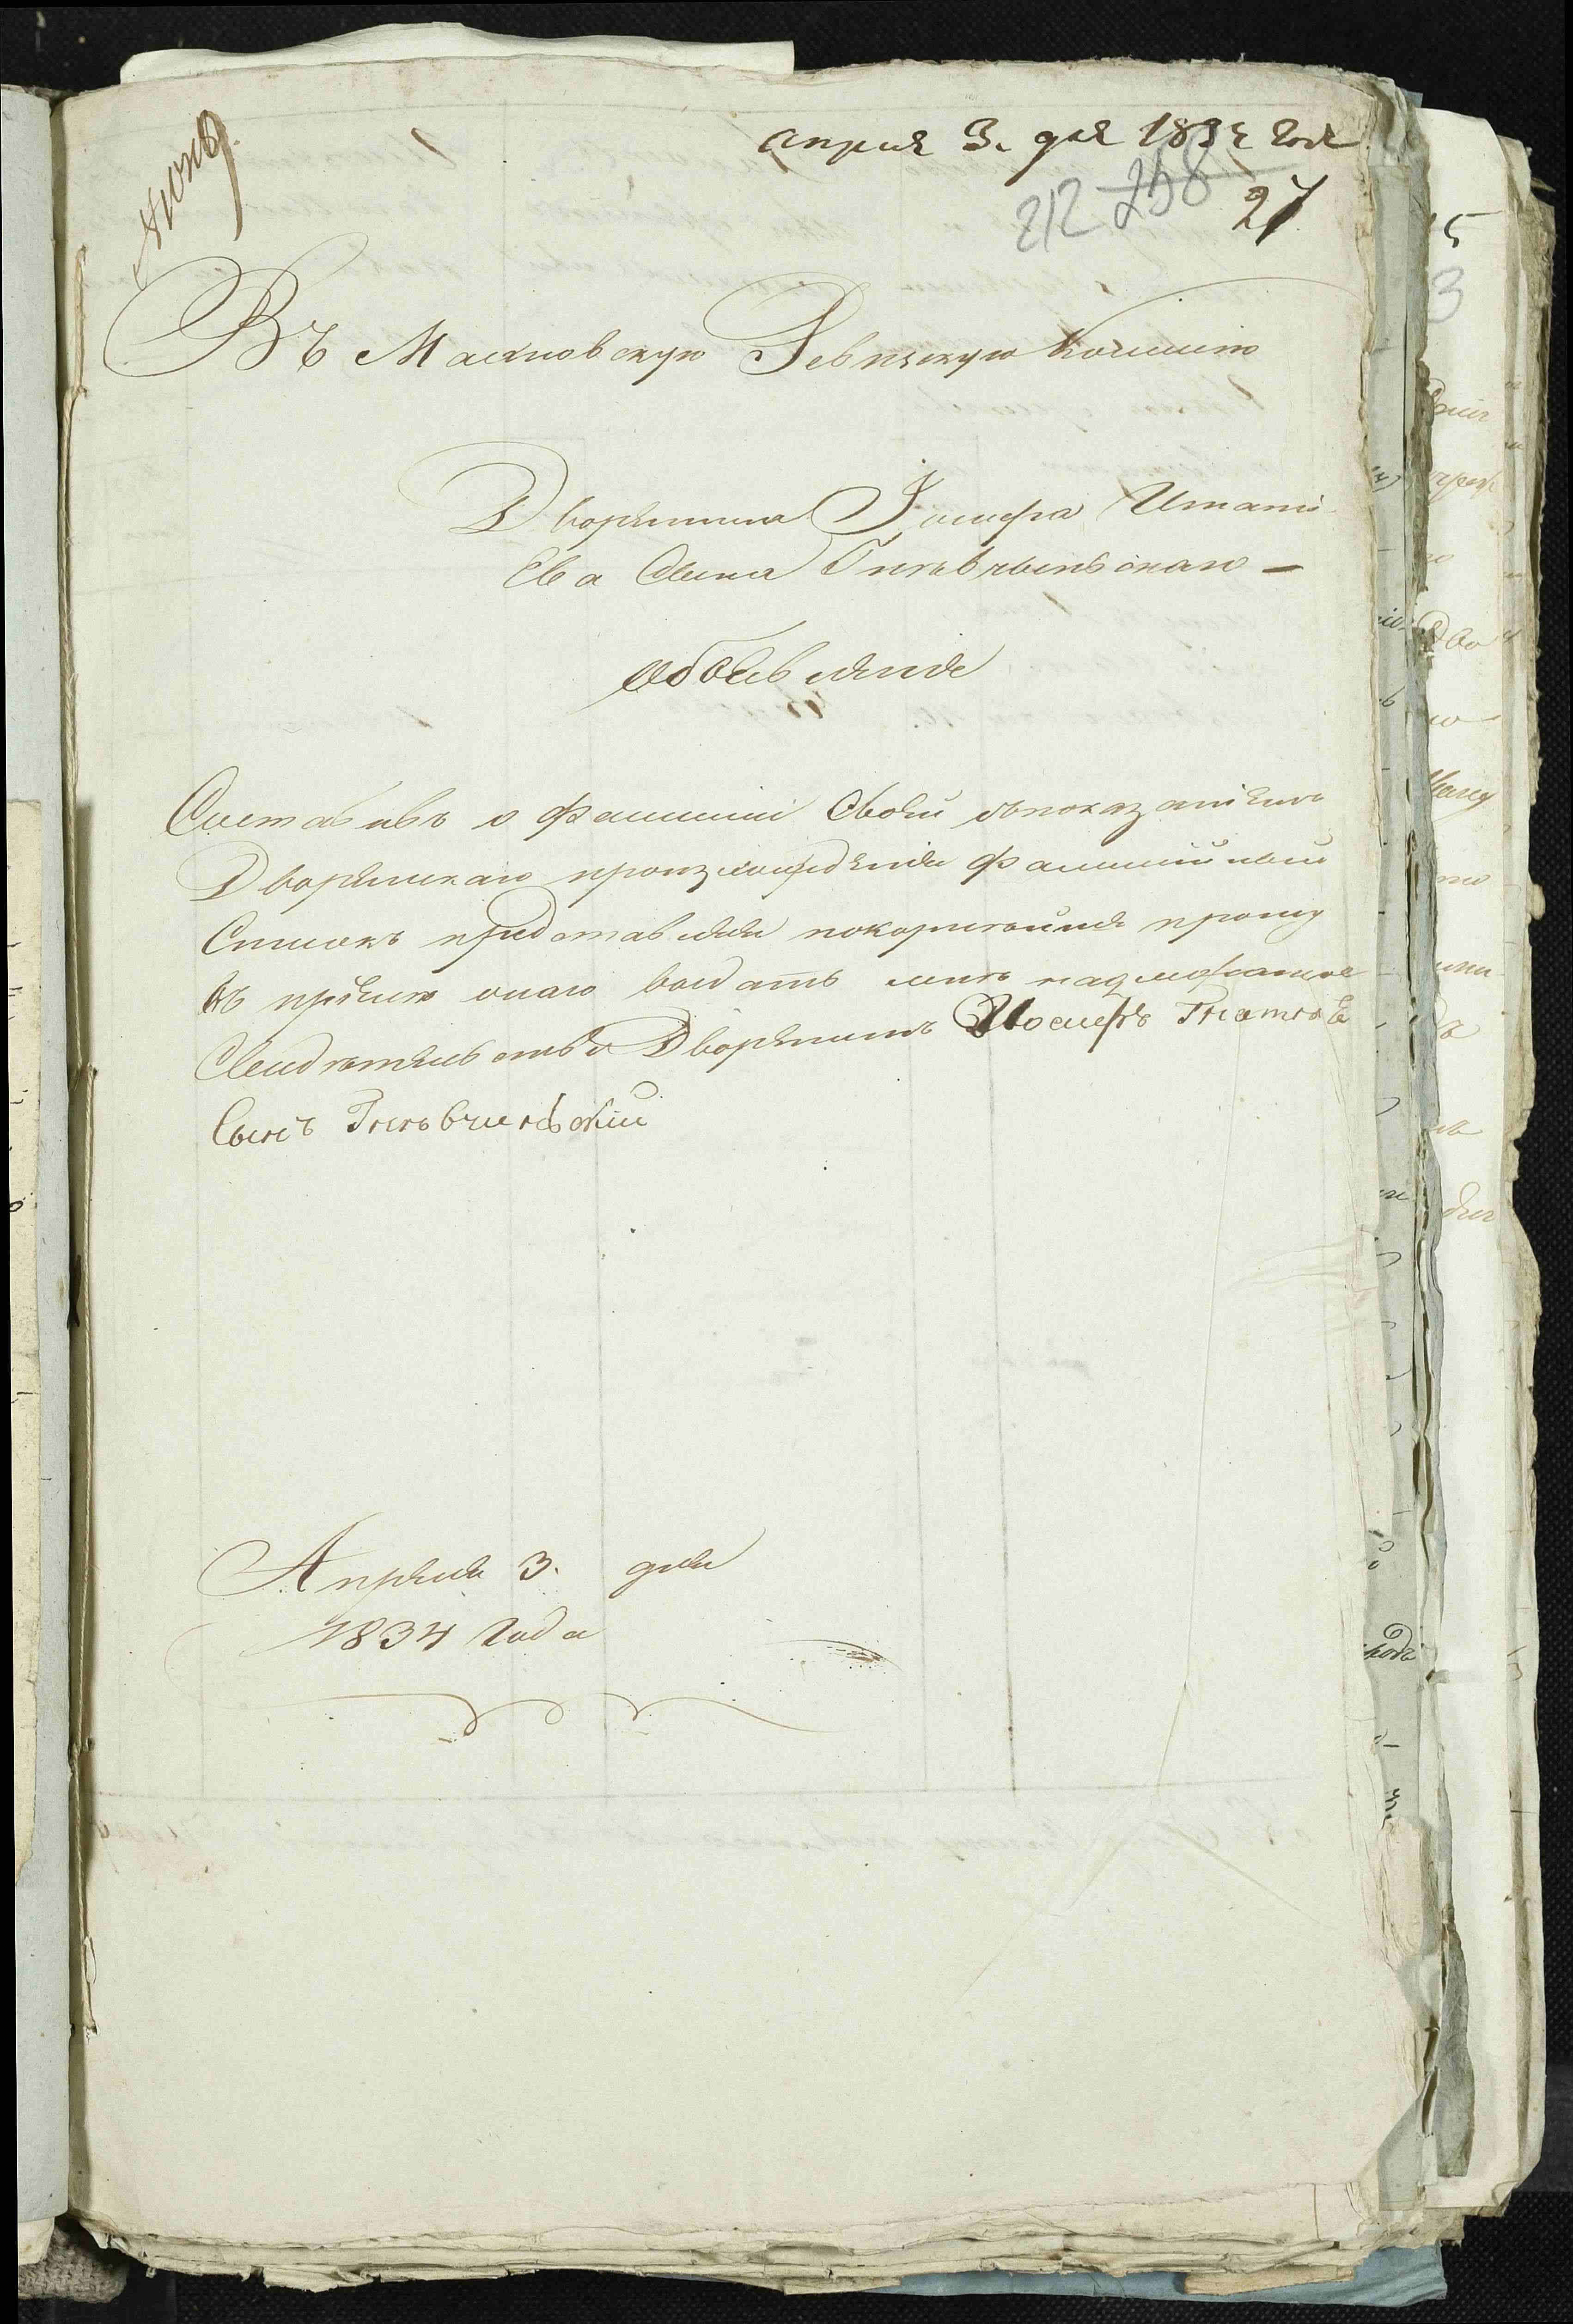 Априля 3. дня 1834 года
212 258 27
Въ Махновскую Ревизскую Комисию
Дворянина Іосифа Игнаті-
ева Сына Гнѣвчинскаго —
Обовьявление
Составивъ о Фамилии Своей съ показаніемъ
Дворянскаго произхождения Фамилійный
Списокъ представляя покорнѣйше прошу
въ приёме онаго выдать мнѣ надлежащее
Свидѣтельство Дворянинъ Иосифъ Гнатовъ
Сынъ Гнѣвчинский
Апреля 3. дня
1834 года